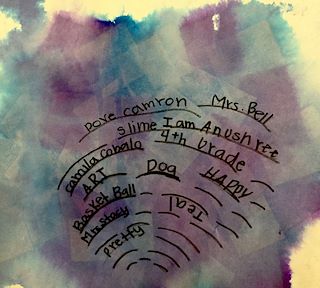 Dove camron Mrs. Bell
slime I am Anushree
camilla cobalo 4th brade
ART Dog HAPPY
Basket Ball
Mrs. Stacy Teal
pretty